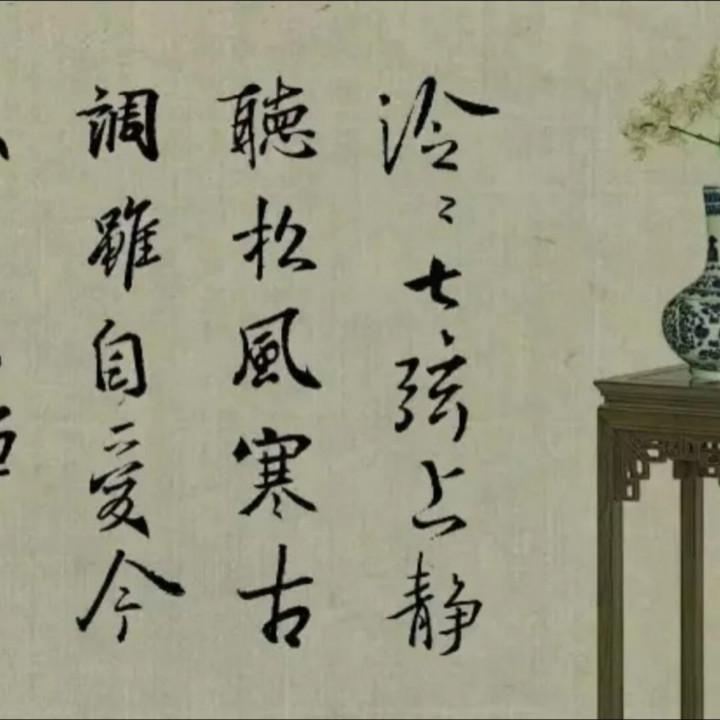 泠〻七弦上静
聽松風寒古
調雖自愛今